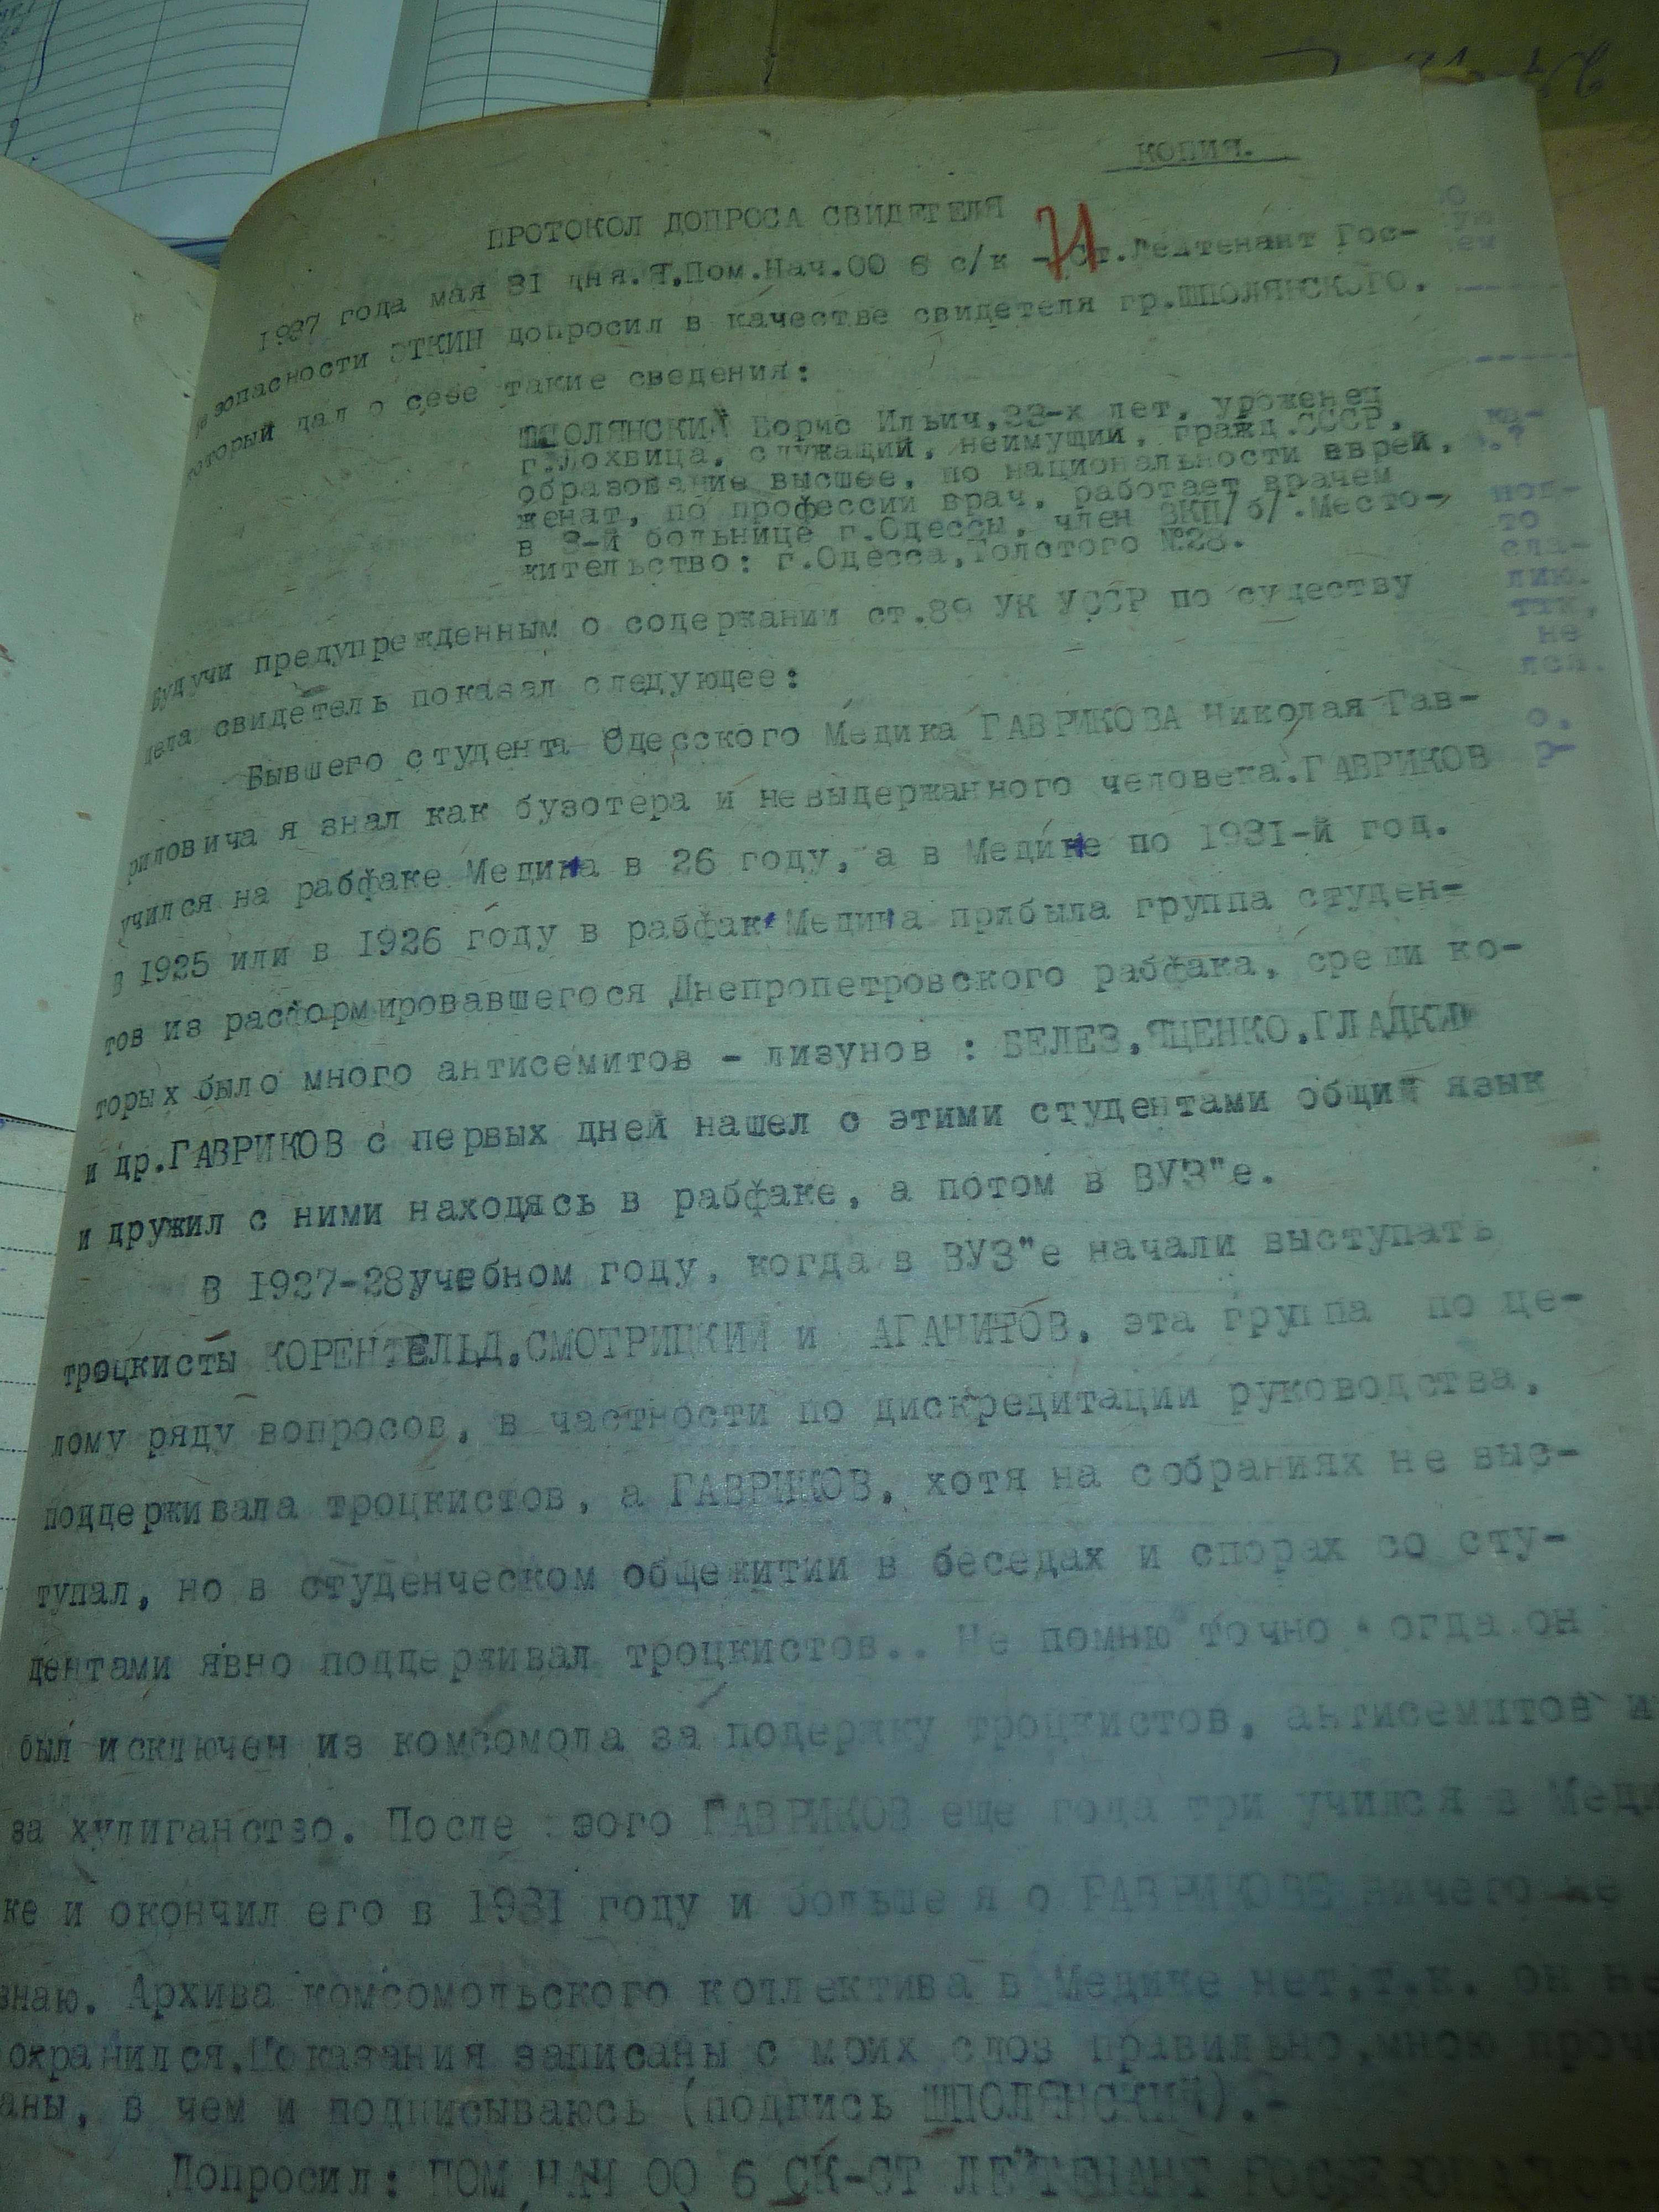 КОПИЯ.
ПРОТОКОЛ ДОПРОСА СВИДЕТЕЛЯ
1937 года мая 31 дня.Я,Пом.Нач.ОО 6 с/к - Ст.Лейтенант Гос-
безопасности ЭТКИН допросил в качестве свидетеля гр.ШПОЛЯНСКОГО,
который дал о себе такие сведения:
ШПОЛЯНСКИЙ Борис Ильич,33-х лет, уроженец
г.Лохвица, служащий, неимущий, гражд.СССР,
образование высшее, по национальности еврей,
женат, по профессии врач, работает врачем
в 3-й больнице г.Одессы, член ВКП/б/.Место-
жительство: г.Одесса,Толстого №28.
Будучи предупрежденным о содержании ст.89 УК УССР по существу
дела свидетель показал следующее:
Бывшего студента Одесского Медина ГАВРИКОВА Николая Гав-
риловича я знал как бузотера и невыдержанного человека.ГАВРИКОВ
учился на рабфаке Медина в 26 году, а в Медине по 1931-й год.
В 1925 или в 1926 году в рабфак Медина прибыла группа студен-
тов из расформировавшегося Днепропетровского рабфака, среди ко-
торых было много антисемитов - лизунов : БЕЛЕЗ,ЯЦЕНКО,ГЛАДКИЙ
и др.ГАВРИКОВ с первых дней нашел с этими студентами общий язык
и дружил с ними находясь в рабфаке, а потом в ВУЗ"е.
В 1927-28учебном году, когда в ВУЗ"е начали выступать
троцкисты КОРЕНТЕЛЬД,СМОТРИЦКИЙ и АГАНИТОВ, эта группа по це-
лому ряду вопросов, в частности по дискредитации руководства,
поддерживала троцкистов, а ГАВРИКОВ, хотя на собраниях не выс-
тупал, но в студенческом общежитии в беседах и спорах со сту-
дентами явно поддерживал троцкистов.. Не помню точно огда он
был исключен из комсомола за подержку троцкистов, антисемитов и
за хулиганство. После эого ГАВРИКОВ еще года три учился в Меди
ке и окончил его в 1931 году и больше я о ГАВРИКОВЕ ничего не
знаю. Архива комсомольского коллектива в Медике нет,т.к. он не
охранился.Показания записаны с моих слов правильно,мною прочи
аны, в чем и подписываюсь (подпись ШПОЛЯНСКИЙ).-
Допросил: ПОМ НАЧ ОО 6 СК-СТ ЛЕЙТЕНАНТ ГОСБЕЗОПАСНОСТ